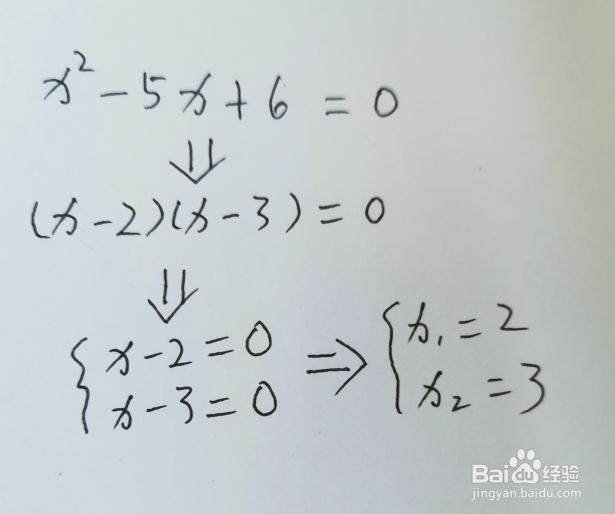 x² - 5x + 6 = 0
⇓
(x - 2)(x - 3) = 0
⇓
{ x - 2 = 0 ⇒ { x₁ = 2
x - 3 = 0 x₂ = 3
Baidu 经验
jingyan.baidu.com